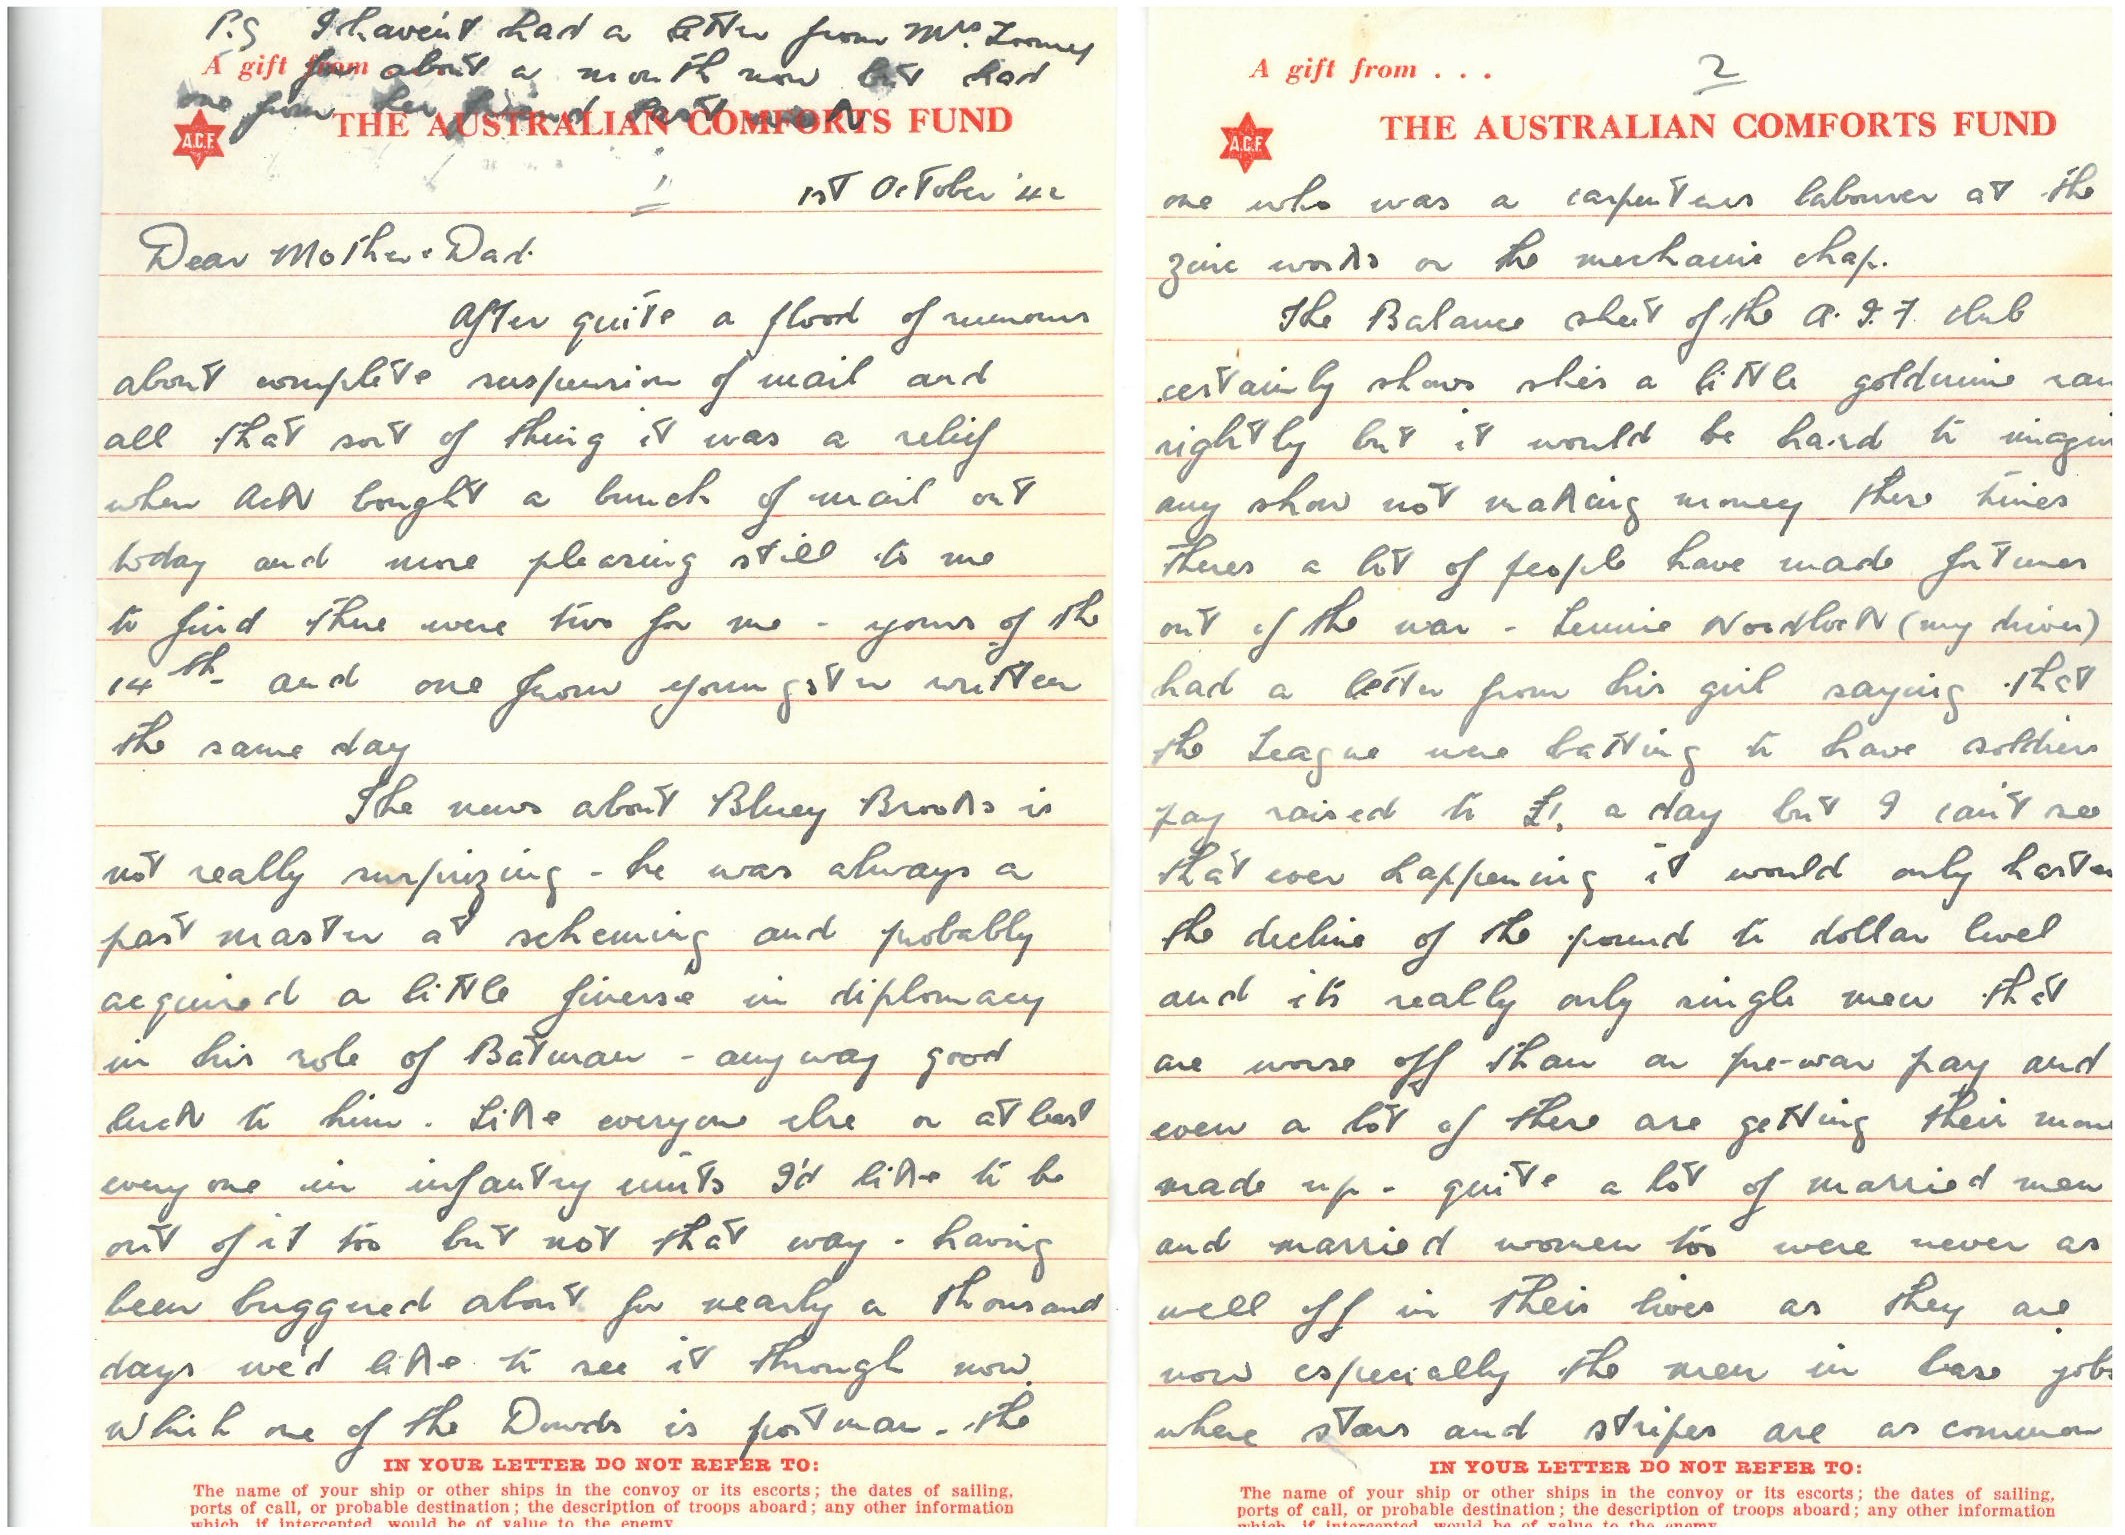 P.S I haven't had a letter from Mrs. Toomey
A gift from
for about a month now but had
one from her friend last week
A.C.F.
THE AUSTRALIAN COMFORTS FUND
1 1st October '42
Dear Mother & Dad.
After quite a flood of rumours
about complete suspension of mail and
all that sort of thing it was a relief
when Ack bought a bunch of mail out
today and more pleasing still to me
to find there were two for me - yours of the
14th. and one from youngster written
the same day
The news about Bluey Brooks is
not really surprizing - he was always a
past master at scheming and probably
acquired a little finesse in diplomacy
in his role of Batman - anyway good
luck to him. Like everyone else or at least
every one in infantry units I'd like to be
out of it too but not that way - having
been buggered about for nearly a thousand
days we'd like to see it through now.
Which one of the Dowds is postman - the
IN YOUR LETTER DO NOT REFER TO:
The name of your ship or other ships in the convoy or its escorts; the dates of sailing,
ports of call, or probable destination; the description of troops aboard; any other information
which, if intercepted, would be of value to the enemy
A gift from . . . 2
A.C.F.
THE AUSTRALIAN COMFORTS FUND
one who was a carpenters labourer at the
zinc works or the mechanic chap.
The Balance sheet of the A.I.F. club
certainly shows she's a little goldmine ran
rightly but it would be hard to imagin
any show not making money these times
theres a lot of people have made fortunes
out of the war - Lennie (my driver)
had a letter from his girl saying that
the League were batting to have soldiers
pay raised to £1. a day but I can't see
that ever happening it would only hasten
the decline of the pound to dollar level
and its really only single men that
are worse off than on pre-war pay and
even a lot of these are getting their mone
made up - quite a lot of married men
and married women too were never as
well off in their lives as they are
now especially the men in base jobs
where stars and stripes are as common
IN YOUR LETTER DO NOT REFER TO:
The name of your ship or other ships in the convoy or its escorts; the dates of sailing,
ports of call, or probable destination; the description of troops aboard; any other information
which, if intercepted, would be of value to the enemy